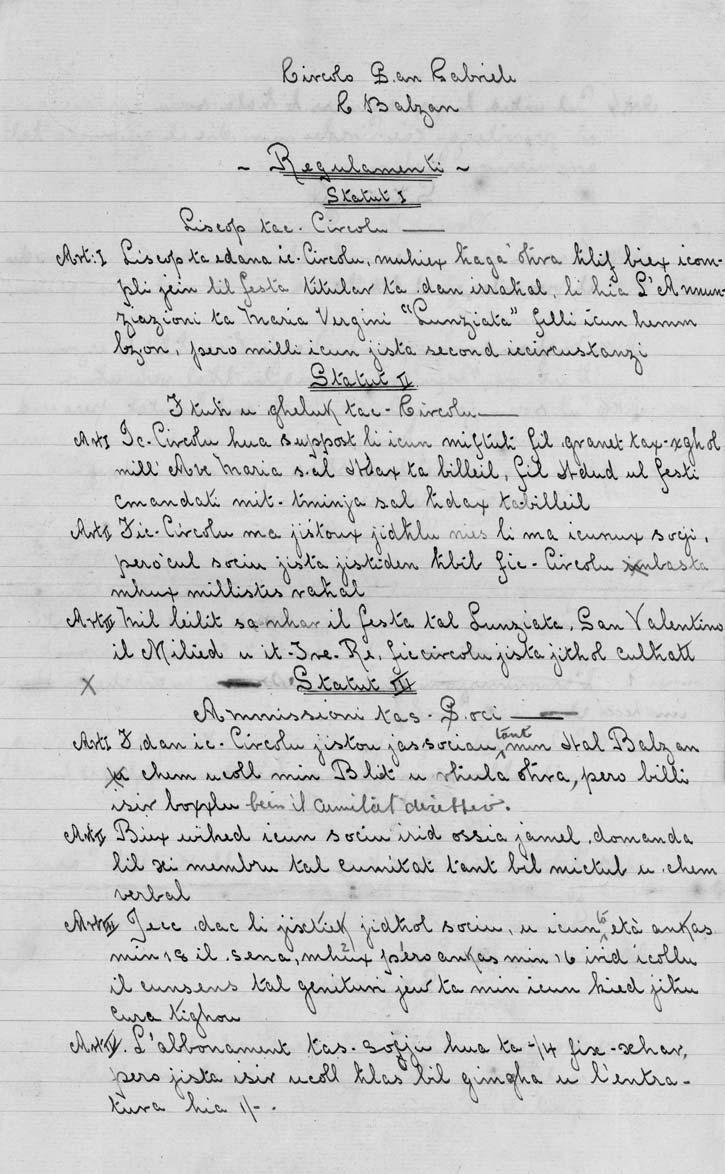 Circolo San Gabriele
C Balzan
- Regulamenti -
Statut I
Liscop tac-Circolu
Art: I Liscop ta edana ic-Circolu, muhiex haga ohra hlif biex icom-
pli jein lil festa titular ta dan irrahal, li hia L'Annun-
ziazioni ta Maria Vergini "Lunziata" filli icun hemm
bzon, pero milli icun jista second iccircustanzi
Statut II
Ftuh u gheluk tac-Circolu
Art I Ic-Circolu hua suppost li icun miftuh fil granet tax-xghol
mill' Ave Maria sal Hdax ta billeil, fil Hdud ul festi
cmandati mit-tminja sal hdax ta-billeil
Art II Fic-Circolu ma jistoux jidhlu nies li ma icunux soçji,
pero' cul sociu jista jistiden hbil fic-Circolu imbasta
mhux millistes rahal
Art III Mil leilit sa nhar il festa tal Lunziata, San Valentino
il Milied u it-Tre-Re, fic circolu jista jithol culhatt
X Statut III
Ammissioni tas-Soci
Art I F'dan ic-Circolu jistou jassociau tant min Hal Balzan
chem ucoll min Blét u rhula ohra, pero billi
isir boxxlu bein il cumitat direttiv.
Art II Biex wihed icun sociu irid ossia jamel domanda
lil xi membru tal cumitat tant bil mictub u chem
verbal
Art III Jecc dac li jixtiek jidhol sociu, u icun ta età ankas
min 18 il sena, mhux péro ankas min 16 irid icollu
il cunsens tal genituri jew ta min icun hied jihu
cura tighou
Art IV. L'abbonament tas-soçju hua ta -/4 fix-xhar,
pero jista isir ucoll hlas bil gimgha u l'entra-
tura hia 1/-.